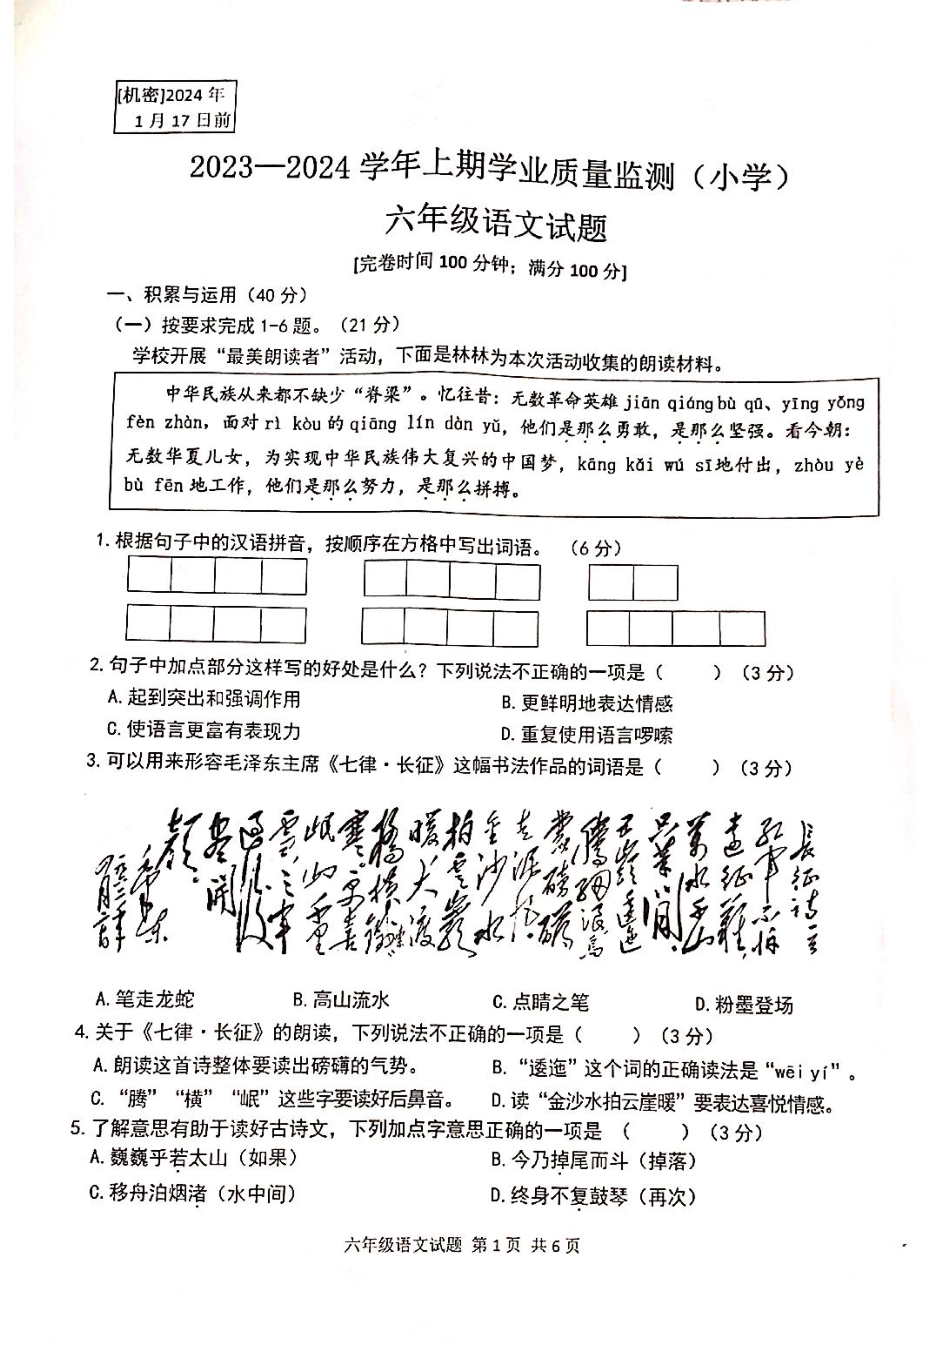 [机密]2024 年
1 月 17 日前
2023—2024 学年上期学业质量监测（小学）
六年级语文试题
[完卷时间 100 分钟；满分 100 分]
一、积累与运用（40 分）
（一）按要求完成 1-6 题。（21 分）
学校开展“最美朗读者”活动，下面是林林为本次活动收集的朗读材料。
中华民族从来都不缺少“脊梁”。忆往昔：无数革命英雄 jiān qiáng bù qū、yīng yǒng
fèn zhàn，面对 rì kòu 的 qiāng lín dàn yǔ，他们是那么勇敢，是那么坚强。看今朝：
无数华夏儿女，为实现中华民族伟大复兴的中国梦，kāng kǎi wú sī地付出，zhòu yè
bù fēn 地工作，他们是那么努力，是那么拼搏。
1. 根据句子中的汉语拼音，按顺序在方格中写出词语。（6 分）
2. 句子中加点部分这样写的好处是什么？下列说法不正确的一项是（　　）（3 分）
A. 起到突出和强调作用　B. 更鲜明地表达情感
C. 使语言更富有表现力　D. 重复使用语言啰嗦
3. 可以用来形容毛泽东主席《七律·长征》这幅书法作品的词语是（　　）（3 分）
长征诗一
红军不怕
远征难
万水千山
只等闲
五岭逶迤
腾细浪乌
蒙磅礴
走泥丸
金沙水
拍云崖
暖大渡
桥横铁索
寒更喜
岷山千里
雪三军
过后
尽开
颜
毛泽东
A. 笔走龙蛇　B. 高山流水　C. 点睛之笔　D. 粉墨登场
4. 关于《七律·长征》的朗读，下列说法不正确的一项是（　　）（3 分）
A. 朗读这首诗整体要读出磅礴的气势。　B. “逶迤”这个词的正确读法是“wēi yí”。
C. “腾”“横”“岷”这些字要读好后鼻音。　D. 读“金沙水拍云崖暖”要表达喜悦情感。
5. 了解意思有助于读好古诗文，下列加点字意思正确的一项是 （　　）（3 分）
A. 巍巍乎若太山（如果）　B. 今乃掉尾而斗（掉落）
C. 移舟泊烟渚（水中间）　D. 终身不复鼓琴（再次）
六年级语文试题 第 1 页 共 6 页